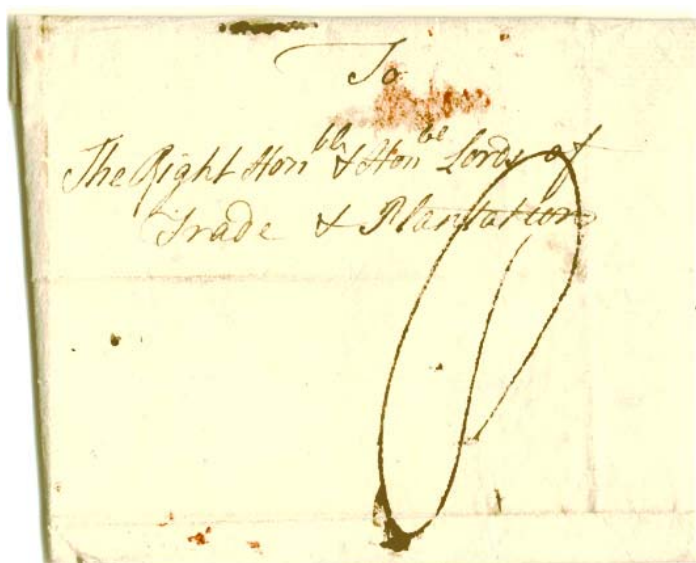 To
The Right Hon^ble & Hon^ble Lords of
Trade & Plantations